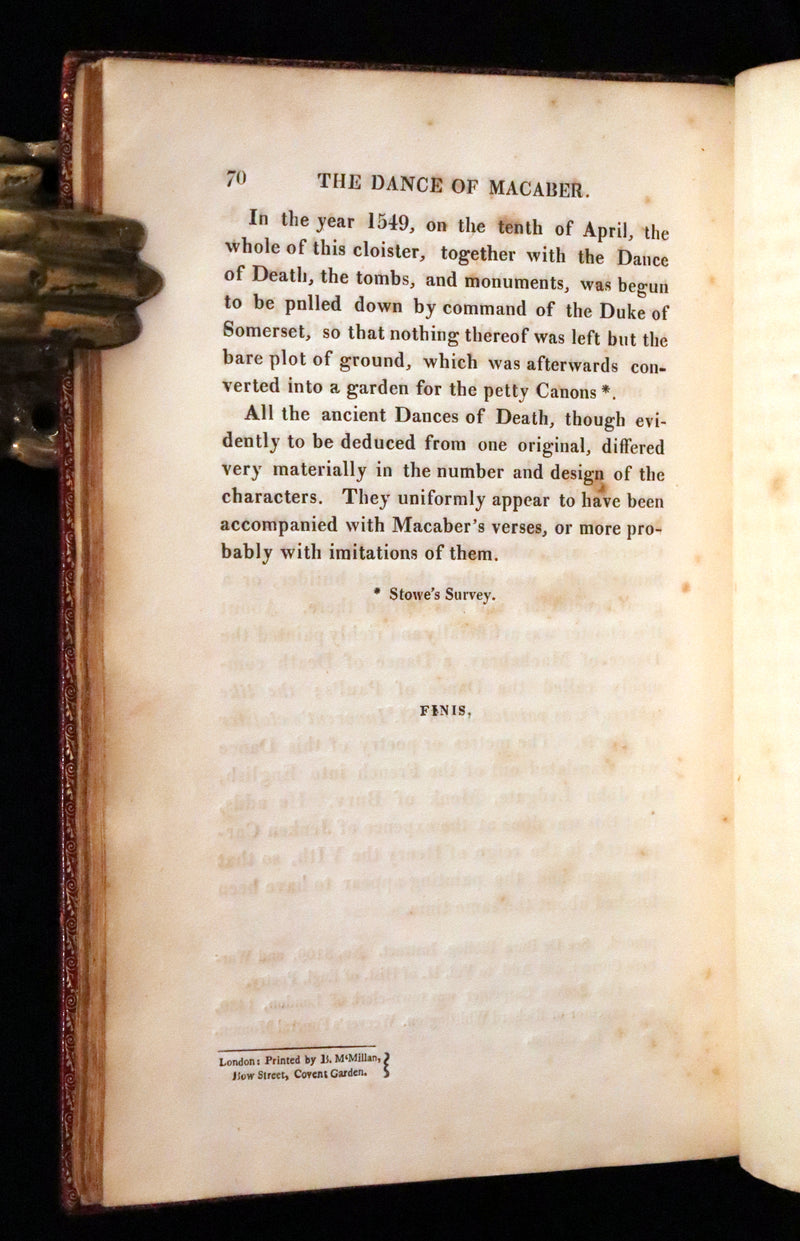 70 THE DANCE OF MACABER.
In the year 1549, on the tenth of April, the
whole of this cloister, together with the Dance
of Death, the tombs, and monuments, was begun
to be pulled down by command of the Duke of
Somerset, so that nothing thereof was left but the
bare plot of ground, which was afterwards con-
verted into a garden for the petty Canons *.
All the ancient Dances of Death, though evi-
dently to be deduced from one original, differed
very materially in the number and design of the
characters. They uniformly appear to have been
accompanied with Macaber's verses, or more pro-
bably with imitations of them.
* Stowe's Survey.
FINIS.
London: Printed by B. M‘Millan,
Bow Street, Covent Garden. }